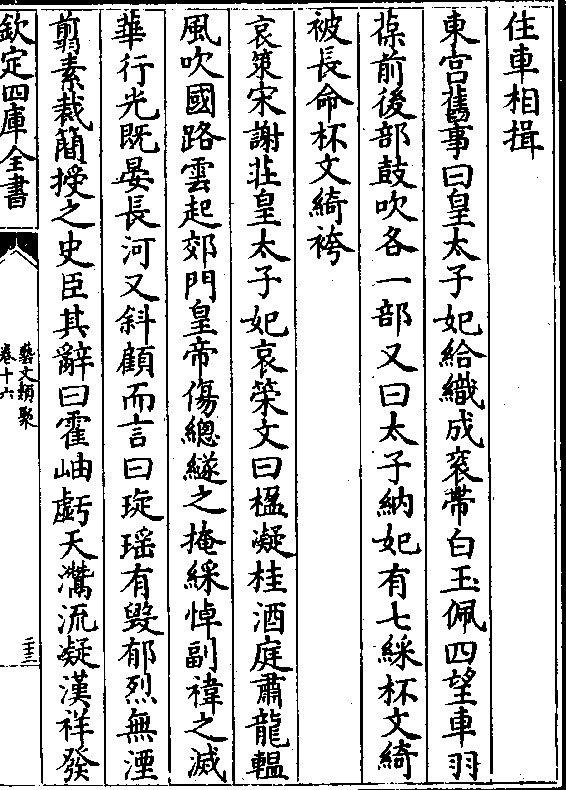 住車相揖
東宫舊事曰皇太子妃給織成衮帶白玉佩四望車羽
葆前後部鼓吹各一部又曰太子納妃有七綵杯文綺
被長命杯文綺袴
哀策宋謝莊皇太子妃哀策文曰楹凝桂酒庭肅龍轀
風吹國路雲起郊門皇帝傷總繸之掩綵悼副褘之滅
華行光既晏長河又斜顧而言曰琁瑶有毁郁烈無湮
翦素裁簡授之史臣其辭曰霍岫虧天灊流凝漢祥發
欽定四庫全書
藝文類聚
卷十六
二十三